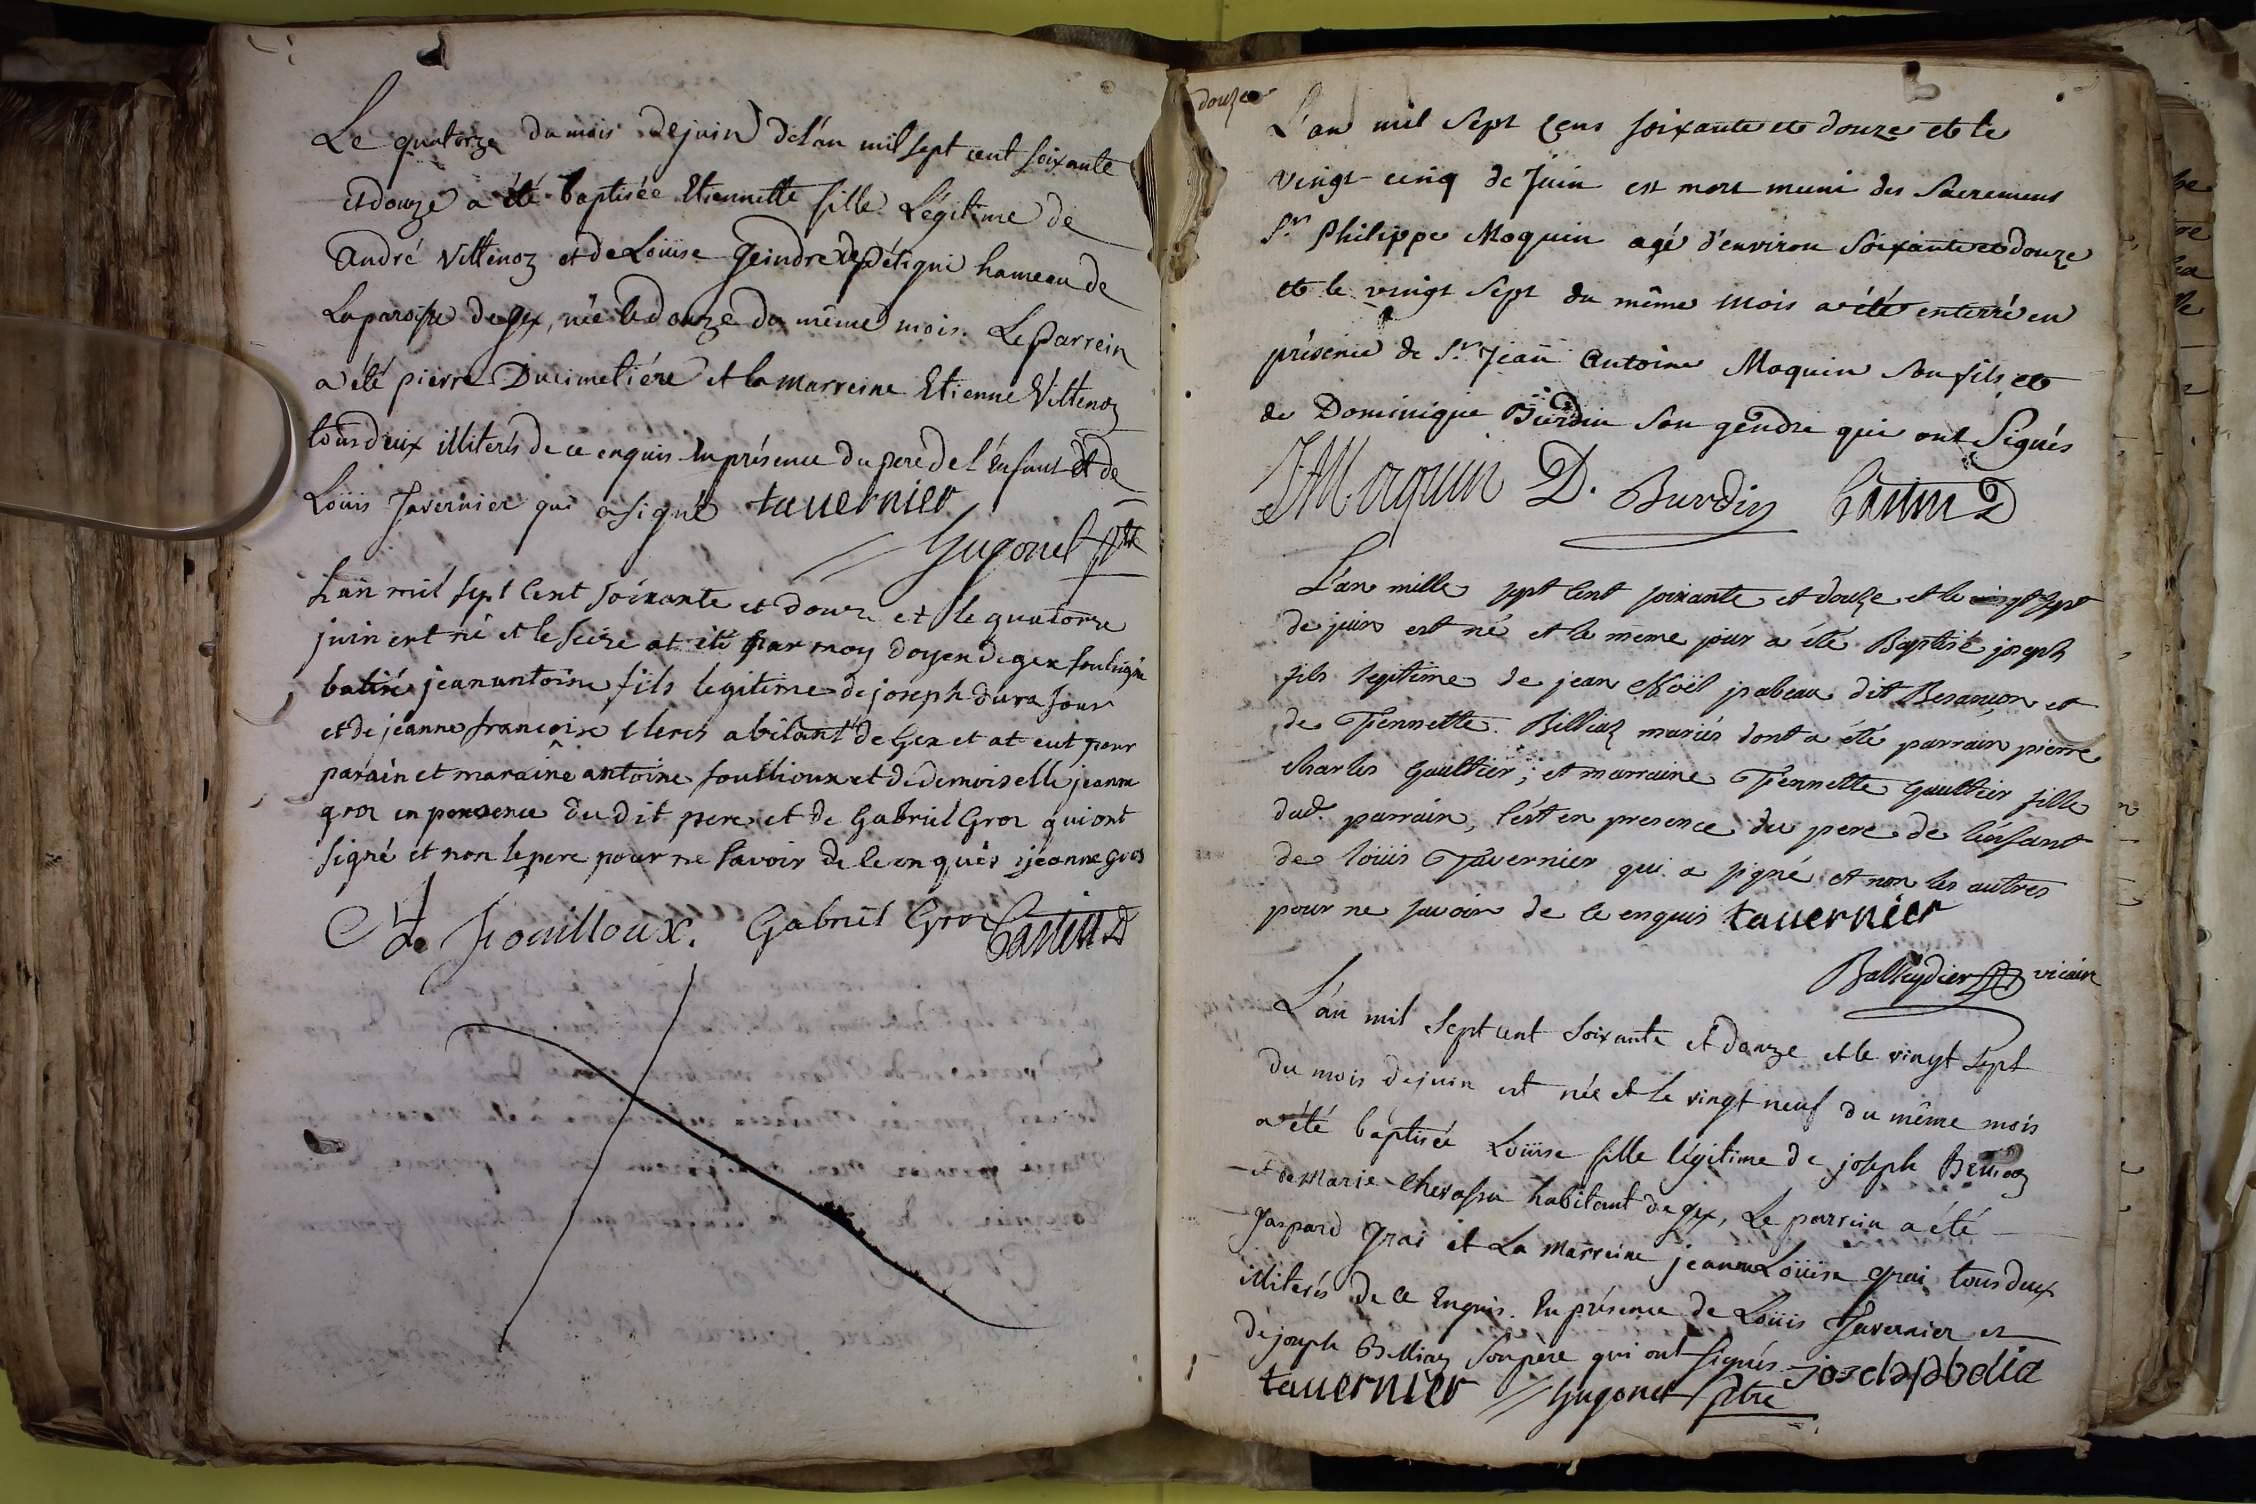 Le quatorze du mois de juin de l'an mil sept cent soixante
et douze a été baptisée Etiennette fille Légitime de
André Vittenoz et de Loüise Geindre de Pétigni hameau de
La paroisse de gex, née le douze du même mois. Le parrein
a été pierre Ducimetiére et la marreine Etienne Vittenoz
tous deux illiterés de ce enquis En présence du pere de l'enfant et de
Loüis Tavernier qui a signé tauernier
Hugonet ptre
L'an mil sept Cent soixante et douze et le quatorze
juin ent né et le seize at eté par moy doyen de gex soubsigné
batisé jean antoine fils legitime de joseph dura four
et de jeanne francoise Clercs abitant de Gex et at eut pour
parain et maraine antoine fouillioux et de demoiselle jeanne
gros en presence du dit pere et de Gabriel Gros qui ont
signé et non le pere pour ne savoir de ce enquis jeanne gros
A. fouilloux. Gabriel Gros Castin D
douze
L'an mil sept Cens soixante et douze et le
vingt cinq de Juin est mort muni des Sacremens
Sr. Philippe Moquin agé d'environ Soixante et douze
et le vingt sept du même mois a été enterré en
présence de Sr. Jean Antoine Moquin son fils et
de Dominique Burdin son gendre qui ont Signés
JAMoquin D. Burdin Castin D
L'an mille sept Cent soixante et douze et le vingt sept
de juin est né et le meme jour a été Baptisé joseph
fils legitime de jean Noël jsabeau dit Besançon et
de Tiennette Billiaz mariés dont a été parrain pierre
Charles Gaultier; et marraine Tiennette Gaultier fille
dud. parrain, C'est en presence du pere de l'enfant
de loüis Tavernier qui a signé et non les autres
pour ne savoir de ce enquis tauernier
Balleydier vicaire
L'an mil Sept cent Soixante et douze et le vingt Sept
du mois de juin est née et le vingt neuf du même mois
a été baptisée Loüise fille légitime de joseph
et de Marie Chevassu habitant de gex, Le parrein a été
Gaspard Grai et La Marreine jeanne Loüise Grai tous deux
illiterés de ce Enquis. En présence de Loüis Tavernier et
de joseph Billiaz son pere qui ont signés
tauernier Hugonet ptre